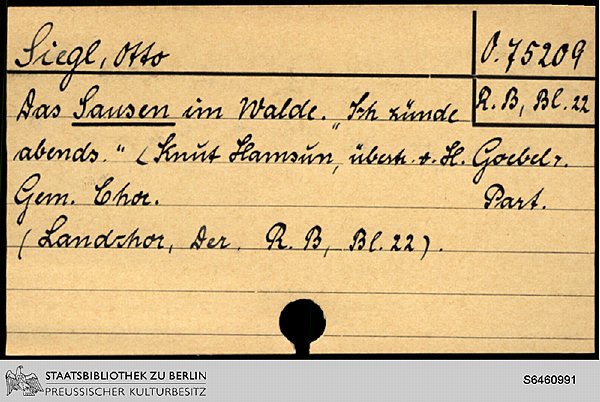 Siegl, Otto
O. 75209
R. B, Bl. 22
Das Sausen im Walde. "Ich zünde
abends." (Knut Hamsun, übertr. v. H. Goebel).
Gem. Chor. Part.
(Landchor, Der. R. B, Bl. 22).
STAATSBIBLIOTHEK ZU BERLIN
PREUSSISCHER KULTURBESITZ
S6460991